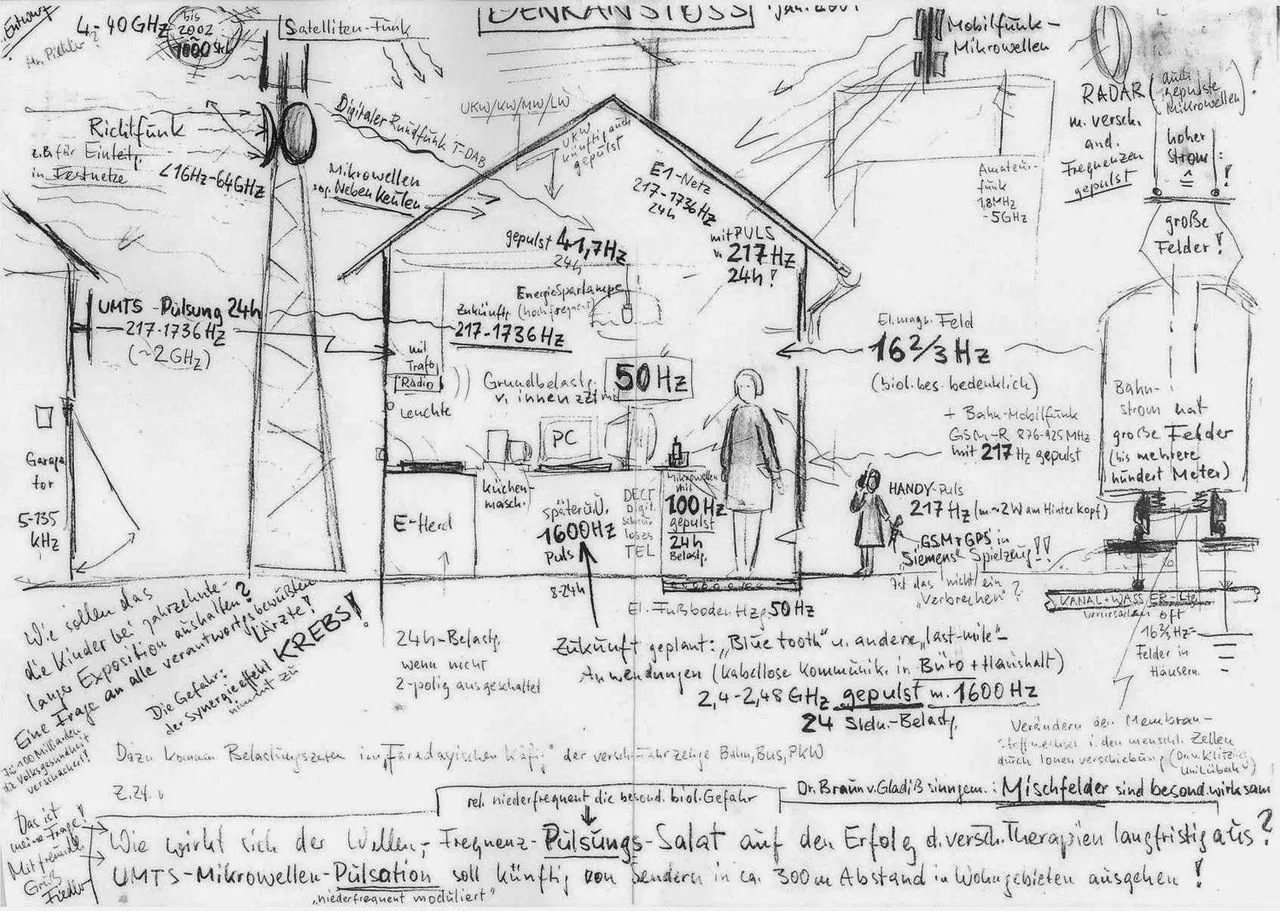 Entwurf
4-40 GHz
bis
2002
1000 Stk
Satelliten-Funk
DENKANSTOSS
Mobilfunk-
Mikrowellen
RADAR
m. versch.
and.
Frequenzen
gepulst
(auch
gepulste
Mikrowellen)
!
hoher
Strom!
≙
große
Felder!
Richtfunk
z.B. für Einleitg.
in Festnetze
<1GHz-64GHz
Digitaler Rundfunk T-DAB
UKW/KW/MW/LW
UKW
künftig auch
gepulst
Mikrowellen
sog. Nebenkeulen
E1-Netz
217-1736Hz
24h
mit PULS
v. 217Hz
24h!
gepulst 41,7Hz
24h
Amateur-
funk
1,8MHz
-5GHz
UMTS-Pulsung 24h
217-1736Hz
(~2GHz)
Energiesparlampe
(hochfrequent)
zukünftg.
217-1736Hz
mit
Trafo
Radio
Leuchte
Grundbelastg.
v. innen zzt mit
50Hz
El.magn. Feld
16 2/3 Hz
(biol. bes. bedenklich)
+ Bahn-Mobilfunk
GSM-R 876-925MHz
mit 217Hz gepulst
Bahn-
strom hat
große Felder
(bis mehrere
hundert Meter)
Garagen
tor
5-135
kHz
PC
Küchen-
masch.
E-Herd
später ü.
1600Hz
Puls
8-24h
DECT
digit.
schnur
loses
TEL
Mikrowellen
mit
100Hz
gepulst
24h
Belastg.
HANDY-Puls
217Hz (m ~2W am Hinterkopf)
"GSM+GPS" in
"Siemens" Spielzeug!!
Ist das nicht ein
"Verbrechen"?
KANAL+WASSER-Ltg
verursachen oft
16 2/3 Hz-
Felder in
Häusern.
El. Fußboden Hzg 50Hz
24h-Belastg.
wenn nicht
2-polig ausgeschaltet
Zukunft geplant: "Blue tooth" u. andere "last-mile"-
Anwendungen (kabellose Kommunik. in Büro + Haushalt)
2,4-2,48 GHz gepulst m. 1600Hz
24 Stdn.-Belastg.
Wie sollen das
die Kinder bei jahrzehnte-
langer Exposition aushalten?
Eine Frage an alle verantwortgsbewußten
Ärzte!
Die Gefahr:
der Synergieeffekt KREBS!
nimmt zu
Für 100 Milliarden
die Volksgesundheit
verschachert!!
Verändern den Membran-
Stoffwechsel i. den menschl. Zellen
durch Ionenverschiebung (Dr. v. Klitzing
Uni Lübeck)
Dazu kommen Belastungszeiten im "Faradayischen Käfig" der versch. Fahrzeuge Bahn, Bus, PKW
rel. niederfrequent die besond. biol. Gefahr
Dr. Braun v. Gladiß sinngem.: Mischfelder sind besond. wirksam
Das ist
meine Frage!
Mit freundl.
Gruß
Wie wirkt sich der Wellen-, Frequenz-Pulsungs-Salat auf den Erfolg d. versch. Therapien langfristig aus?
UMTS-Mikrowellen-Pulsation soll künftig von Sendern in ca. 300m Abstand in Wohngebieten ausgehen!
"niederfrequent moduliert"